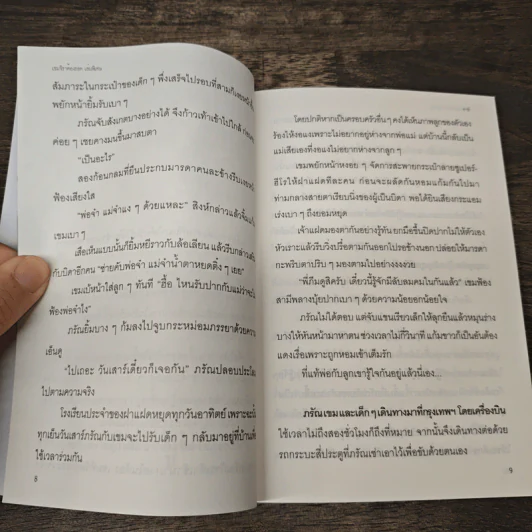 สัมภาระในกระเป๋าของเด็ก ๆ พึ่งเสร็จไปรอบที่สามก็เงยหน้า
พยักหน้ายิ้มรับเบา ๆ
ภรัณจับสังเกตบางอย่างได้ จึงก้าวเท้าเข้าไปใกล้
ค่อย ๆ เชยคางมนขึ้นมาสบตา
“เป็นอะไร”
สองก้อนกลมที่ยืนประกบมารดาคนละข้างรีบ
ฟ้องเสียงใส
“พ่อจ๋า แม่จ๋าแง ๆ ด้วยแหละ” สิงห์กล่าวแล้วจิ้ม
เขมเบา ๆ
เสือเห็นแบบนั้นก็ยิ้มหยีราวกับล้อเลียน แล้วรีบกล่าว
กับบิดาอีกคน “ช่ายคับพ่อจ๋า แม่จ๋าน้ำตาหยดติ๋ง ๆ เยย”
เขมเบ้หน้าใส่ลูก ๆ ทันที “ฮื้อ ไหนรับปากกับแม่ว่าจะไม่
ฟ้องพ่อจ๋าไง”
ภรัณยิ้มบาง ๆ ก้มลงไปจูบกระหม่อมภรรยาด้วยความ
เอ็นดู
“ไปเถอะ วันเสาร์เดี๋ยวก็เจอกัน” ภรัณปลอบประโลม
ไปตามความจริง
โรงเรียนประจำของฝาแฝดหยุดทุกวันอาทิตย์ เพราะฉะนั้น
ทุกเย็นวันเสาร์ภรัณกับเขมจะไปรับเด็ก ๆ กลับมาอยู่ที่บ้านเพื่อ
ใช้เวลาร่วมกัน
8
โดยปกติหากเป็นครอบครัวอื่นๆ คงได้เห็นภาพลูกของตัวเอง
ร้องไห้งอแงเพราะไม่อยากอยู่ห่างจากพ่อแม่ แต่บ้านนี้กลับเป็น
แม่เสียเองที่งอแงไม่อยากห่างจากลูก ๆ
เขมพยักหน้าหงอย ๆ จัดการสะพายกระเป๋าลายซูเปอร์-
ฮีโรให้ฝาแฝดทีละคน ก่อนจะผลัดกันหอมแก้มกันไปมา
ท่ามกลางสายตาเรียบนิ่งของผู้เป็นบิดา พอได้ยินเสียงกระแอม
เร่งเบา ๆ ถึงยอมหยุด
เจ้าแฝดมองตากันอย่างรู้ทัน ยกมือขึ้นปิดปากไม่ให้ตัวเอง
หัวเราะแล้วรีบวิ่งปรื๋อตามกันออกไปรอข้างนอก ปล่อยให้มารดา
กะพริบตาปริบ ๆ มองตามไปอย่างงงงวย
“พี่ภีมดูสิครับ เดี๋ยวนี้รู้จักมีลับลมคมในกันแล้ว” เขมฟ้อง
สามีพลางบุ้ยปากเบา ๆ ด้วยความน้อยอกน้อยใจ
ภรัณไม่ได้ตอบ แต่จับแขนเรียวเล็กให้ลุกยืนแล้วหมุนร่าง
บางให้หันหน้ามาหาตน ช่วงเวลาไม่กี่วินาที แก้มขาวก็เป็นอันต้อง
แดงเรื่อเพราะถูกหอมเข้าเต็มรัก
ที่แท้พ่อกับลูกเขารู้ใจกันอยู่แล้วนี่เอง...
ภรัณ เขม และเด็ก ๆ เดินทางมาที่กรุงเทพฯ โดยเครื่องบิน
ใช้เวลาไม่ถึงสองชั่วโมงก็ถึงที่หมาย จากนั้นจึงเดินทางต่อด้วย
รถกระบะสี่ประตูที่ภรัณเช่าเอาไว้เพื่อขับด้วยตนเอง
9